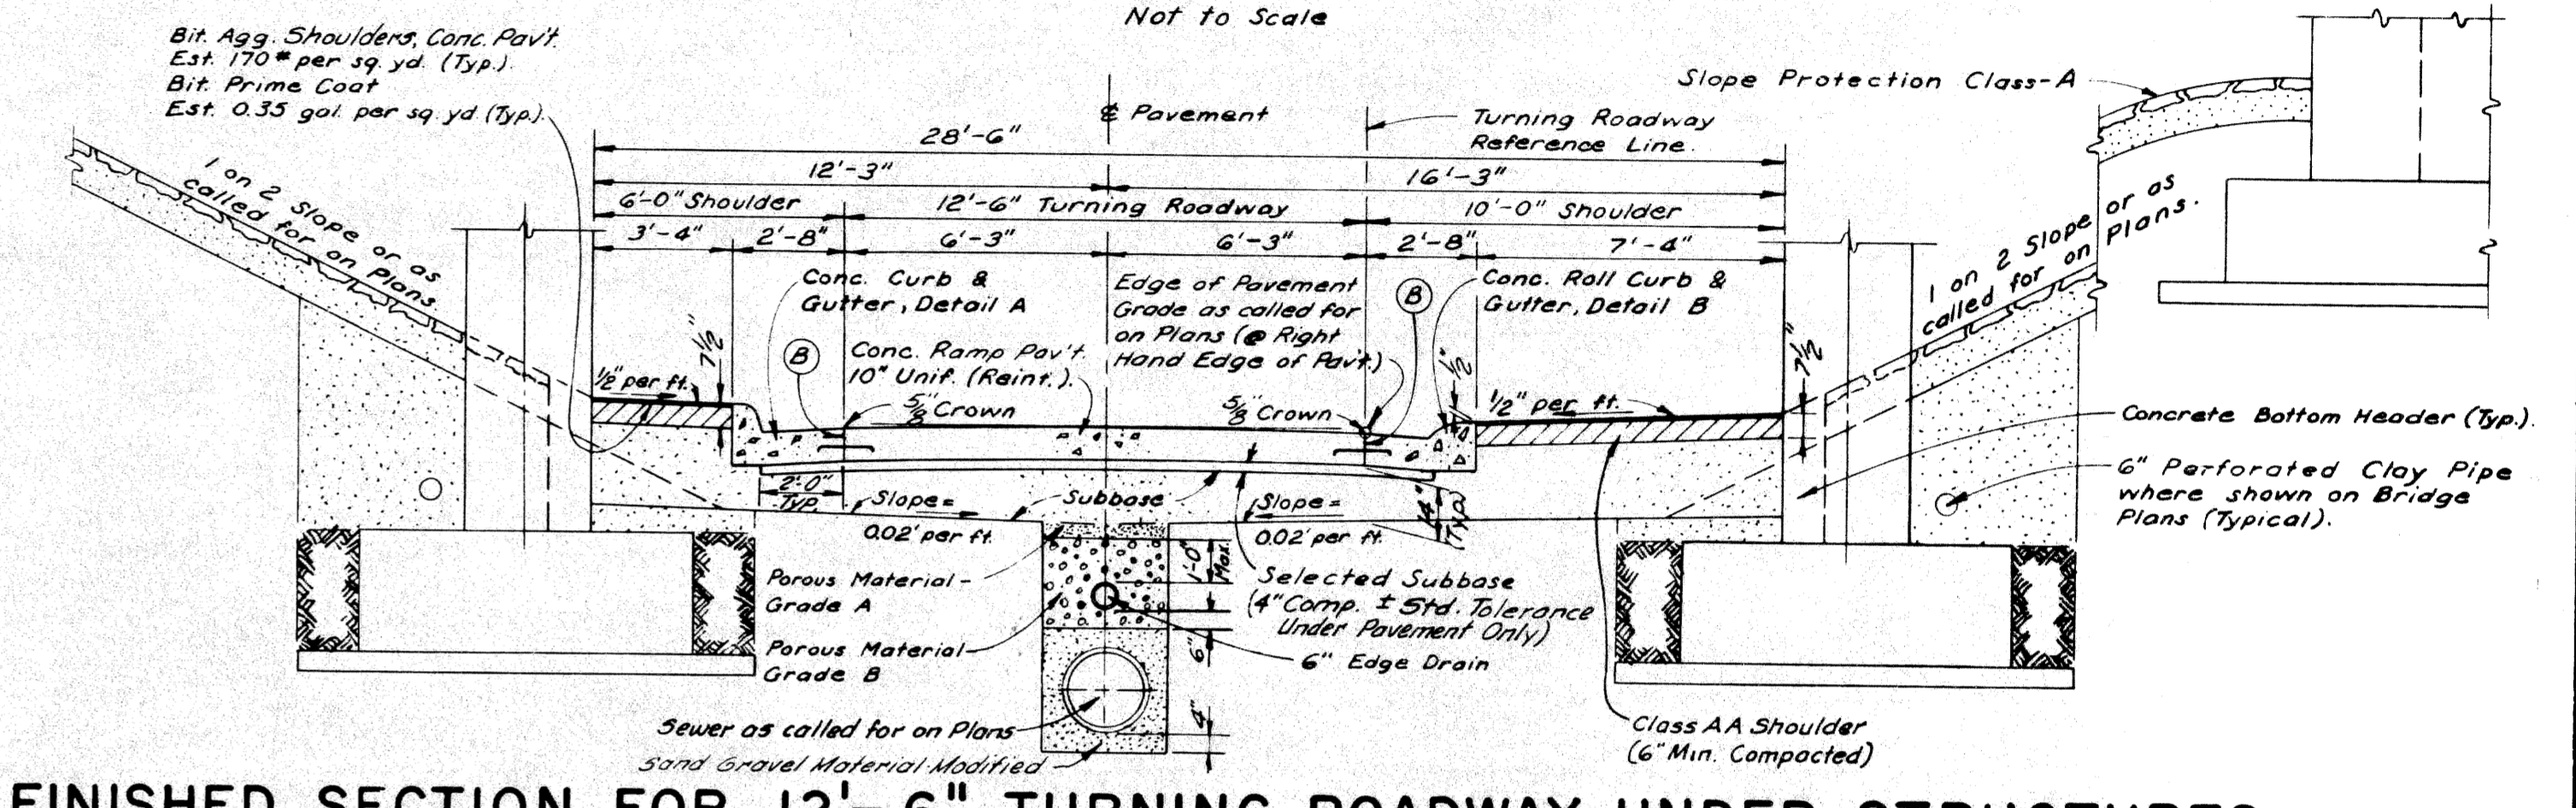 Not to Scale
Bit. Agg. Shoulders, Conc. Pav't.
Est. 170# per sq. yd. (Typ.)
Bit. Prime Coat
Est. 0.35 gal. per sq. yd. (Typ.)
Slope Protection Class-A
℄ Pavement
Turning Roadway
Reference Line.
28'-6"
12'-3"
16'-3"
6'-0" Shoulder
12'-6" Turning Roadway
10'-0" Shoulder
3'-4"
2'-8"
6'-3"
6'-3"
2'-8"
7'-4"
1 on 2 Slope or as
called for on Plans
1 on 2 Slope or as
called for on Plans.
Conc. Curb &
Gutter, Detail A
Edge of Pavement
Grade as called for
on Plans (@ Right
Hand Edge of Pav't.)
B
Conc. Roll Curb &
Gutter, Detail B
7½"
B
Conc. Ramp Pav't.
10" Unif. (Reinf.)
½"
7½"
½" per ft.
⅝" Crown
⅝" Crown
½" per ft.
Concrete Bottom Header (Typ.)
6" Perforated Clay Pipe
where shown on Bridge
Plans (Typical).
2'-0"
Typ.
Slope=
0.02' per ft.
Subbase
Slope=
0.02' per ft.
14"
(Typ.)
Porous Material-
Grade A
1'-0"
Max.
Selected Subbase
(4" Comp. ± Std. Tolerance
Under Pavement Only)
Porous Material
Grade B
6"
6" Edge Drain
Sewer as called for on Plans
4"
Class AA Shoulder
(6" Min. Compacted)
Sand Gravel Material Modified
FINISHED SECTION FOR 12'-6" TURNING ROADWAY UNDER STRUCTURES